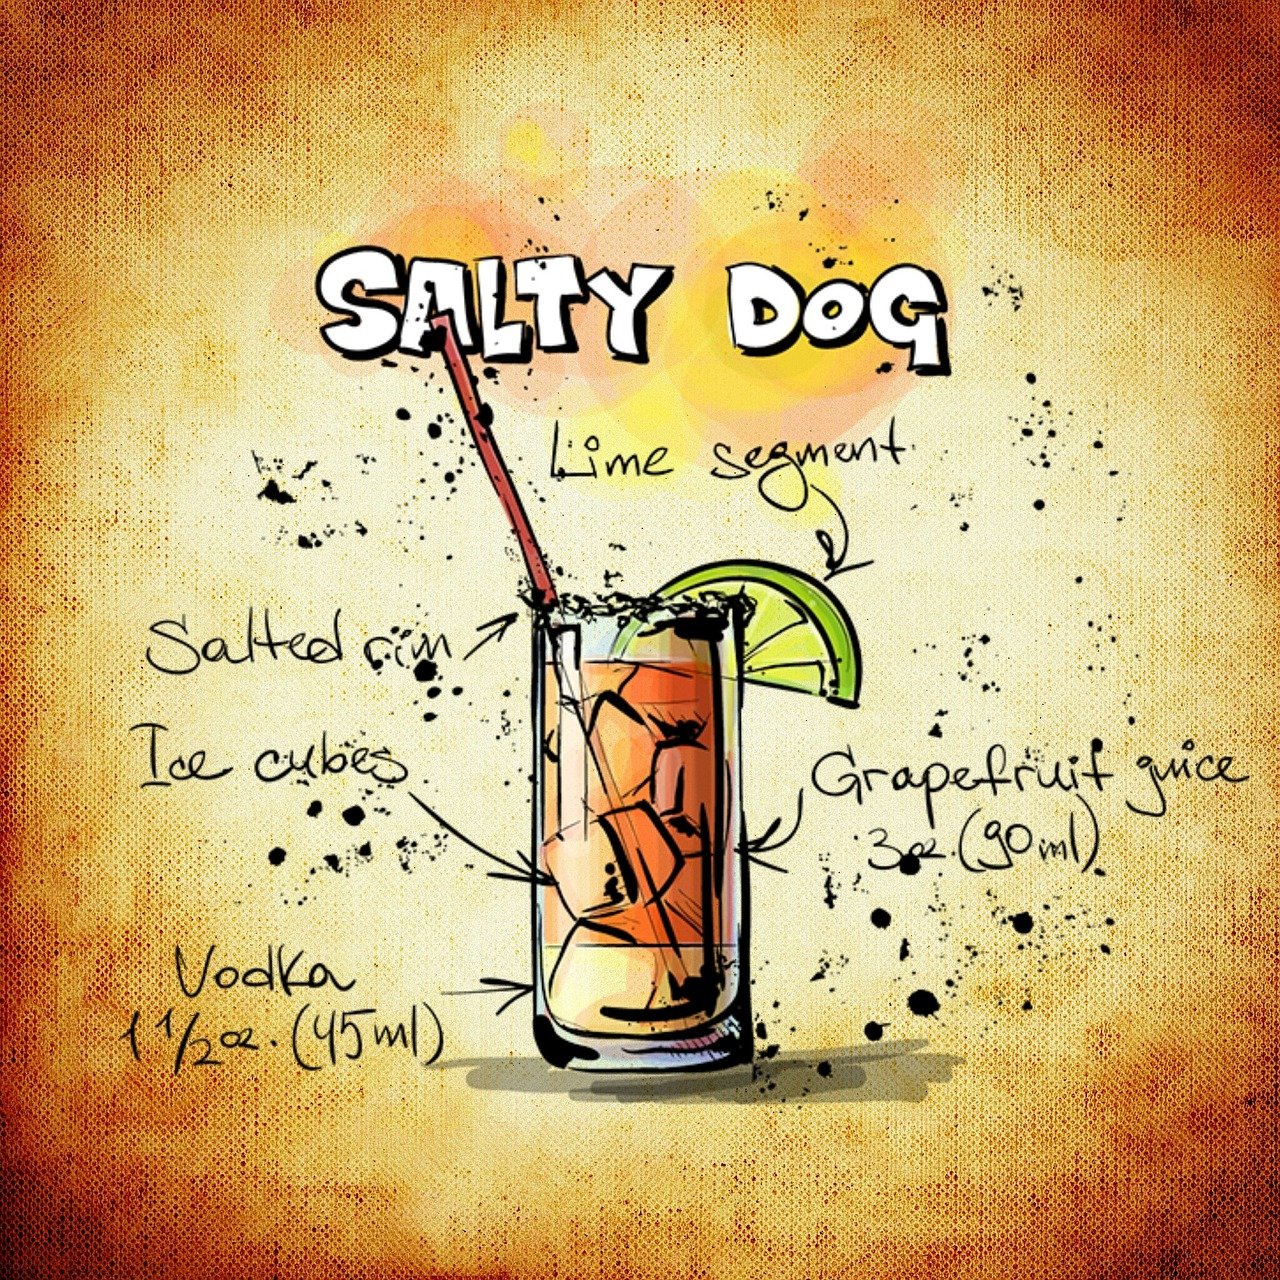 SALTY DOG
Lime segment
Salted rim
Ice cubes
Grapefruit juice
3 oz. (90 ml)
Vodka
1 1/2 oz. (45 ml)